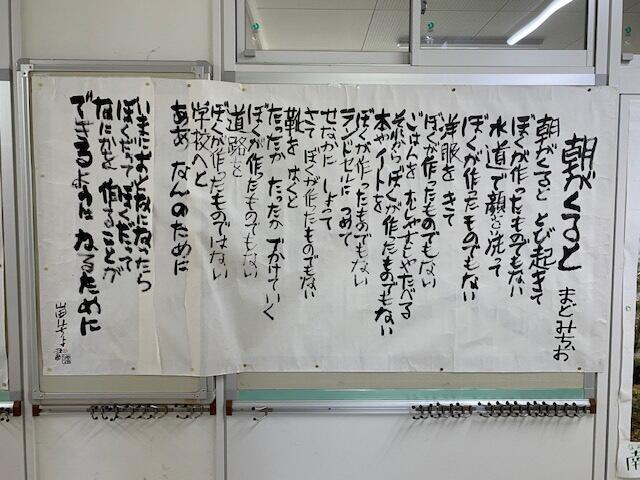 朝がくると
まどみちお
朝がくると とび起きて
ぼくが作ったものでもない
水道で顔を洗って
ぼくが作ったものでもない
洋服を きて
ぼくが作ったものでもない
ごはんを むしゃむしゃたべる
それから ぼくが作ったものでもない
本やノートを
ぼくが作ったものでもない
ランドセルに つめて
せなかに しょって
さて ぼくが作ったものでもない
靴を はくと
たったか たったか でかけていく
ぼくが作ったものでもない
道路を
ぼくが作ったものではない
学校へと
ああ なんのために
いまに おとなになったら
ぼくだって ぼくだって
なにかを 作ることが
できるように なるために
南